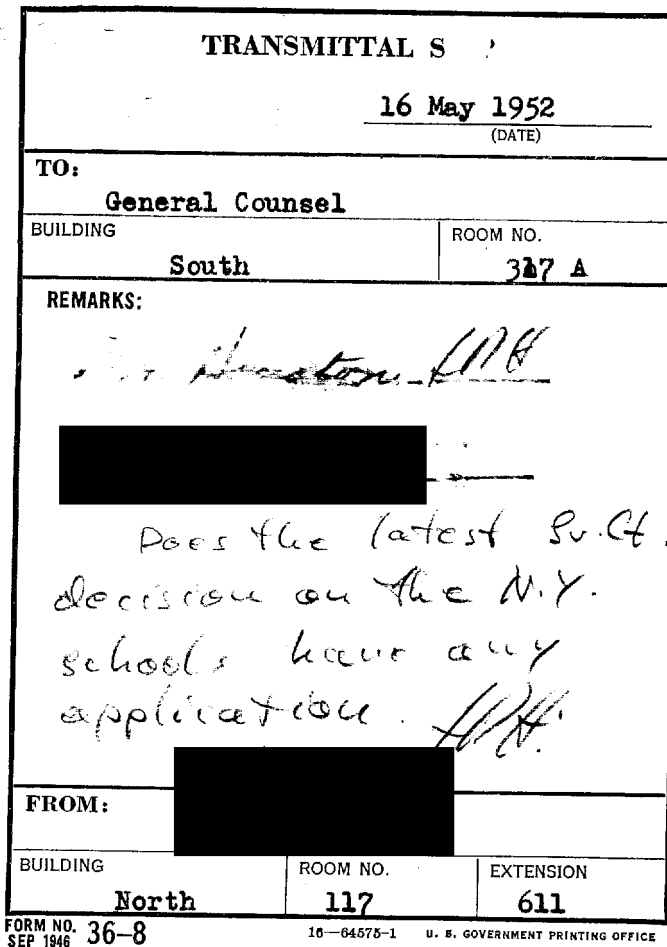 TRANSMITTAL S
16 May 1952
(DATE)
TO:
General Counsel
BUILDING
South
ROOM NO.
317 A
REMARKS:
Houston LRH
Does the latest Su. Ct.
decision on the N.Y.
schools have any
application. LRH.
FROM:
BUILDING
North
ROOM NO.
117
EXTENSION
611
FORM NO. 36–8
SEP 1946
16—64575-1 U. S. GOVERNMENT PRINTING OFFICE